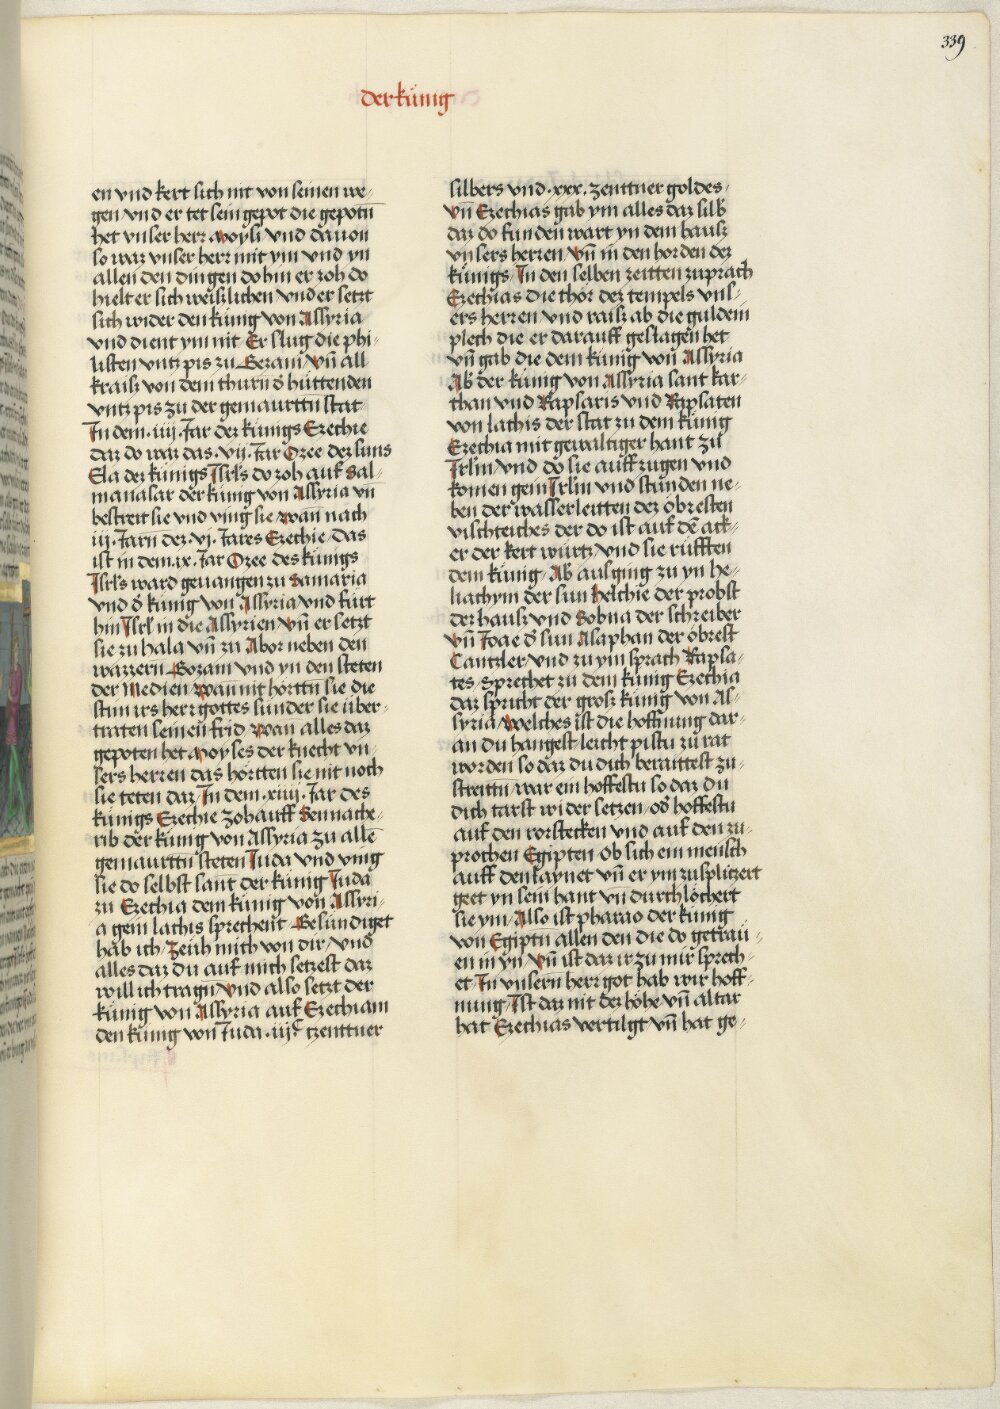 339
der künig
en vnd kert sich nit von seinen we-
gen vnd er tet sein gepot die gepotñ
het vnser herr Moysi vnd dauon
so war vnser herr mit ym vnd yn
allen den dingen do hin er zoh do
hielt er sich weißlichen vnd er setzt
sich wider den künig von Assyria
vnd dient ym nit Er slug die phi-
listen vntz pis zu Gezam vñ all
kraiß von dem thurn d' hüttenden
vntz pis zu der gemaurttñ stat
In dem .iiij. Jar dez künigs Ezechie
daz do waz das .vij. Jar Ozee dez suns
Ela dez künigs Isrl's do zoh auf Sal-
manasar der künig von Assyria vñ
bestreit sie vnd ving sie wan nach
iij. Jarn dez .vj. Jares Ezechie / das
ist in dem .ix. Jar Ozee des künigs
Isrl's ward geuangen zu Samaria
vnd d' künig von Assyria vnd fürt
hin Isrl' in die Assyrien vñ er setzt
sie zu hala vñ zu Abor neben den
wazzern Gozam vnd yn den steten
der Medien wan nit horttñ sie die
stim irs herr gottes sunder sie über-
traten seinen frid wan alles daz
gepoten het Moyses der knecht vn-
sers herren das hörtten sie nit noch
sie teten daz / In dem .xiiij. Jar des
künigs Ezechie zoh auff Sennache-
rib der künig von Assyria zu allē
gemaurttñ steten Juda vnd ving
sie do selbst sant der künig Juda
zu Ezechia dem künig von Assyri-
a gein lachis sprechent Gesundiget
hab ich / Zeuh mich von dir / vnd
alles daz du auf mich setzest daz
will ich tragñ vnd also setzt der
künig von Assyria auf Ezechiam
den künig von Juda .iijc tzenttner
silbers vnd .xxx. zenttner goldes
vñ Ezechias gab ym alles daz silb'
daz do funden wart yn dem hauß
vnsers herren vñ in den horden dez
künigs In den selben zeitten zuprach
Ezechias die thör dez tempels vns-
ers herren vnd raiß ab die guldein
plech die er darauff geslagen het
vñ gab die dem künig von Assyria
Ab' der künig von Assyria sant kar-
than vnd Rapsaris vnd Rapsaten
von lachis der stat zu dem künig
Ezechia mit gewaltiger hant zu
Jrlm vnd do sie auff zugen vnd
komen gein Jrlm vnd stunden ne-
ben der wasserleitten dez öbresten
vischteiches der do ist auf dē ack-
er der kert würtz / vnd sie rüfften
dem künig / Ab' ausging zu yn he-
liachym der sun helchie der probst
dez hauß vnd Sobna der schreiber
vñ Joae d' sun Asaphan der öbrest
Cantzler / vnd zu ym sprach Rapsa-
tes / Sprechet zu dem künig Ezechia
daz spricht der groß künig von As-
syria / welches ist die hoffnung dar-
an du hangest leicht pistu zu rat
worden so daz du dich beraittest zu
streittñ war ein hoffestu so daz du
dich tarst wider setzen / od' hoffestu
auf den rorstecken vnd auf den zu-
prochen Egipten ob sich ein mensch
auff den laynet vñ er ym zusplitzert
geet yn sein hant vñ durchlöchert
sie ym / Also ist pharao der künig
von Egiptñ allen den die do getrau-
en in yn vñ ist daz ir zu mir sprech-
et / In vnsern herr got hab wir hoff-
nung / Ist daz nit dez höhe vñ altar
hat Ezechias vertilgt vñ hat ge-